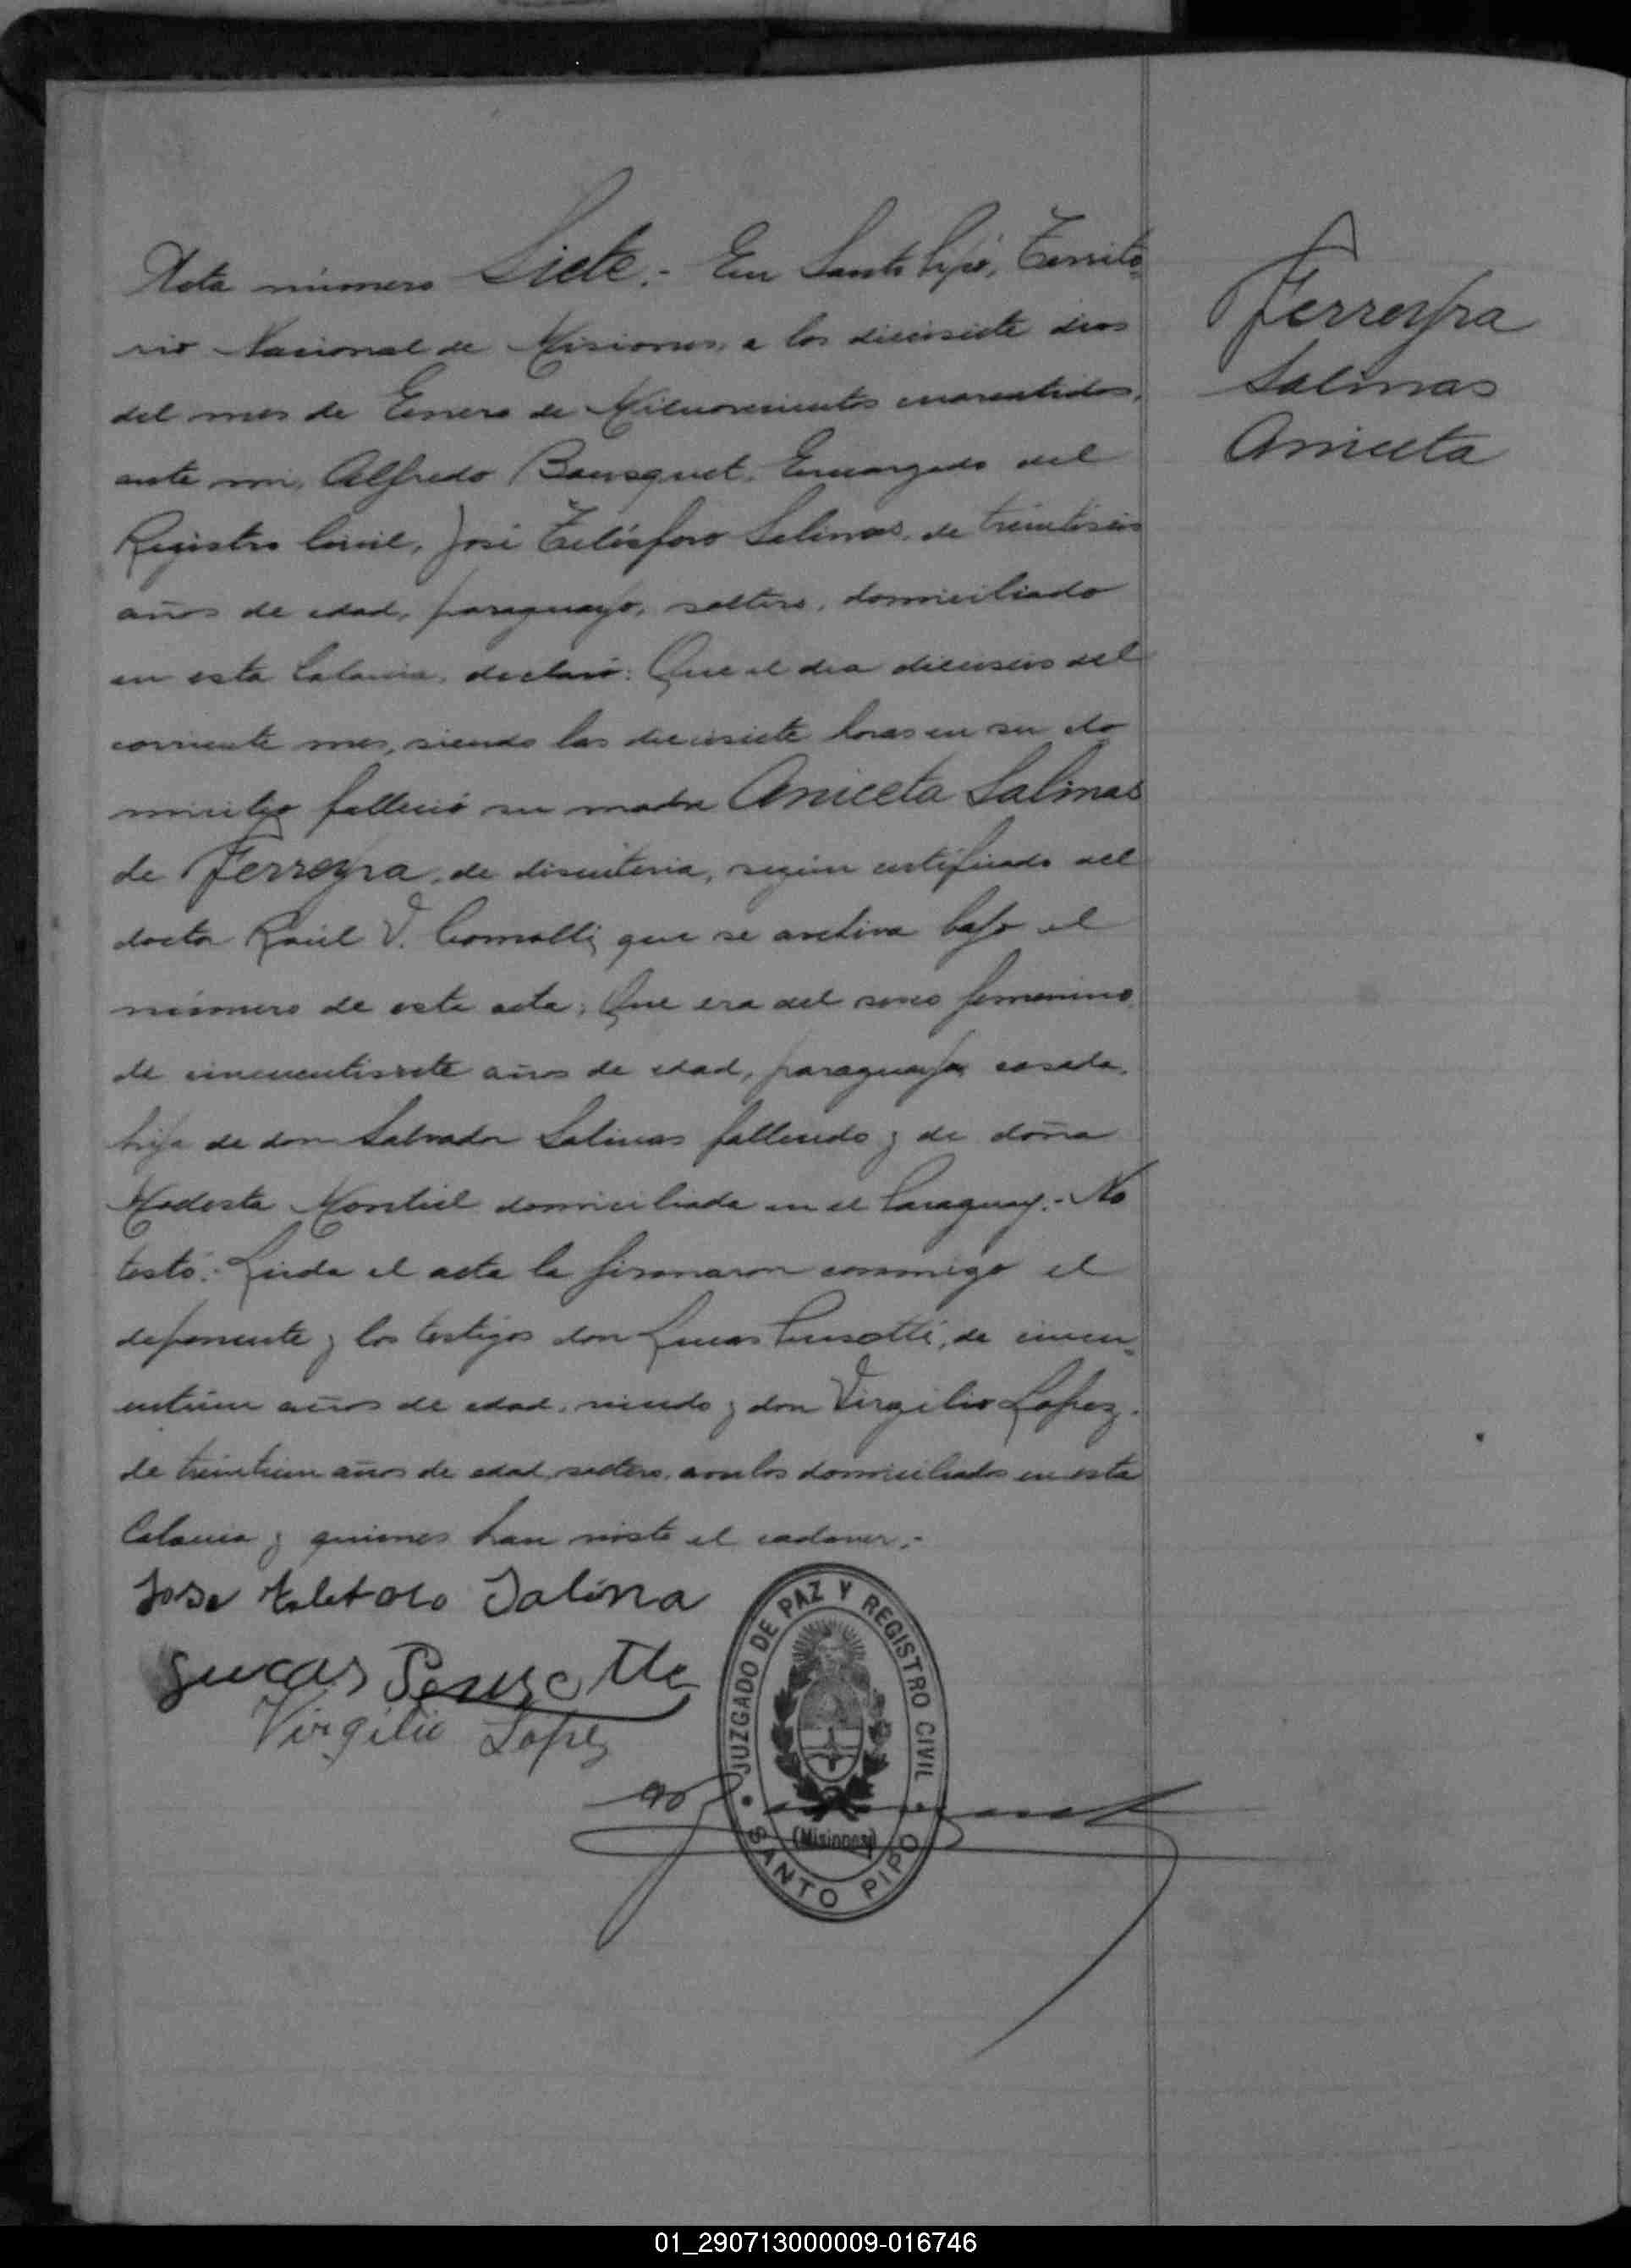 Acta número Siete.- En Santo Pipó, Territo-
rio Nacional de Misiones, a los diecisiete dias
del mes de Enero de Milnovecientos cuarentidos,
ante mi, Alfredo Bousquet, Encargado del
Registro Civil, José Telésforo Salinas, de treintiseis
años de edad, paraguayo, soltero, domiciliado
en esta Colonia, declaró: Que el dia dieciseis del
corriente mes, siendo las diecisiete horas en su do
micilio falleció su madre Aniceta Salinas
de Ferreyra, de disenteria, según certificado del
doctor Raúl V. Comolli, que se archiva bajo el
número de esta acta; Que era del sexo femenino,
de cincuentisiete años de edad, paraguaya, casada,
hija de don Salvador Salinas fallecido y de doña
Modesta Montiel domiciliada en el Paraguay.- No
testó.- Leida el acta la firmaron conmigo el
deponente y los testigos don Lucas Penzotti, de cincu-
entiun años de edad, viudo y don Virgilio Lopez,
de treintiun años de edad, soltero, ambos domiciliados en esta
Colonia y quienes han visto el cadaver.-
Jose Salina
Lucas
Virgilio Lopez
JUZGADO DE PAZ Y REGISTRO CIVIL
(Misiones)
SANTO PIPÓ
Ferreyra
Salinas
Aniceta
01_290713000009-016746